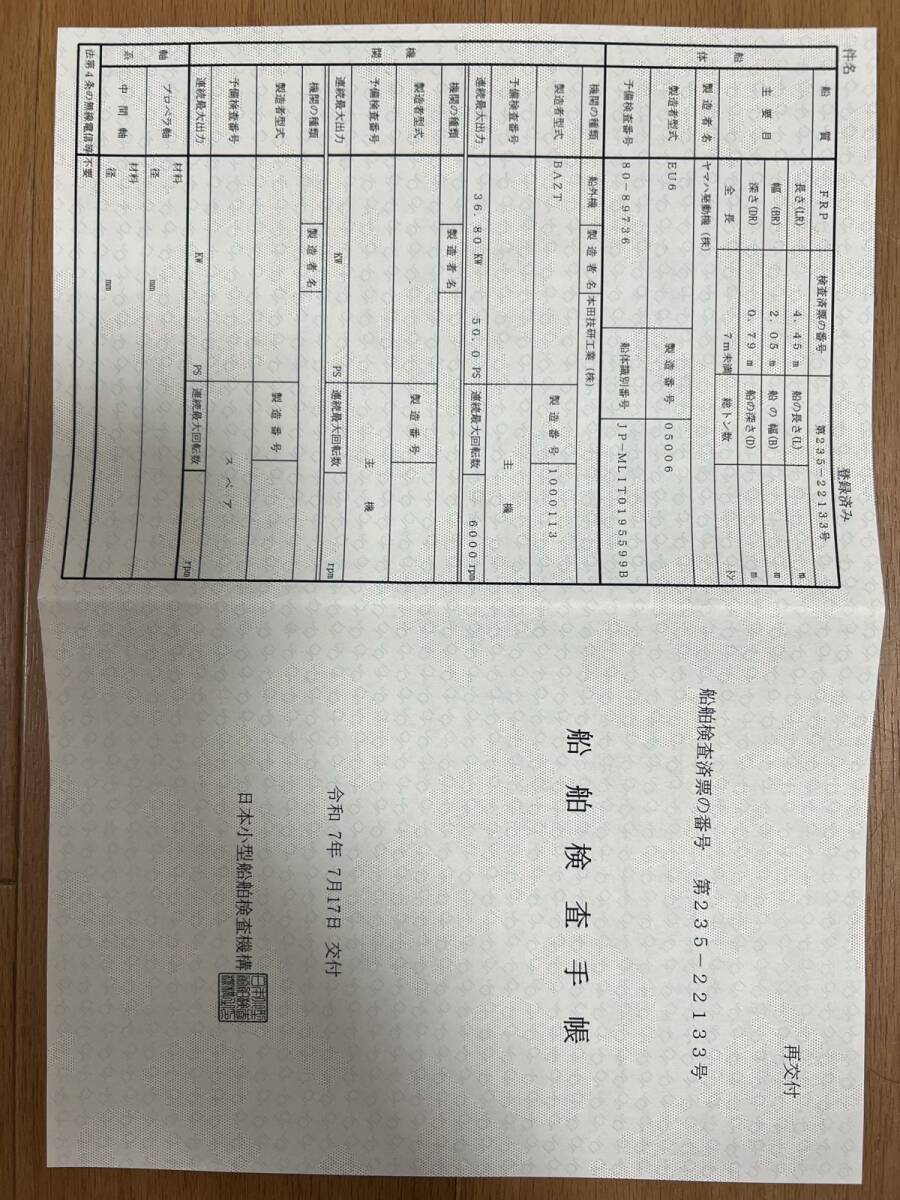 件名
登録済み
船質 FRP 検査済票の番号 第235-22133号
船体
主要目
長さ(LR) 4.45 m 船の長さ(L) m
幅 (BR) 2.05 m 船の幅(B) m
深さ(DR) 0.79 m 船の深さ(D) m
全長 7m未満 総トン数 トン
製造者名 ヤマハ発動機(株)
製造者型式 EU6 製造番号 05006
予備検査番号 80-89736 船体識別番号 JP-ML1T0195599B
機関
機関の種類 船外機 製造者名 本田技研工業(株)
製造者型式 BAZT 製造番号 1000113
予備検査番号 主機
連続最大出力 36.80 KW 50.0 PS 連続最大回転数 6000 rpm
機関の種類 製造者名
製造者型式 製造番号
予備検査番号 主機
連続最大出力 KW PS 連続最大回転数 rpm
機関の種類 製造者名
製造者型式 製造番号
予備検査番号 スペア
連続最大出力 KW PS 連続最大回転数 rpm
軸系
プロペラ軸 材料
径 mm
中間軸 材料
径 mm
法第4条の無線電信等 不要
再交付
船舶検査済票の番号 第235-22133号
船舶検査手帳
令和 7年 7月17日 交付
日本小型船舶検査機構